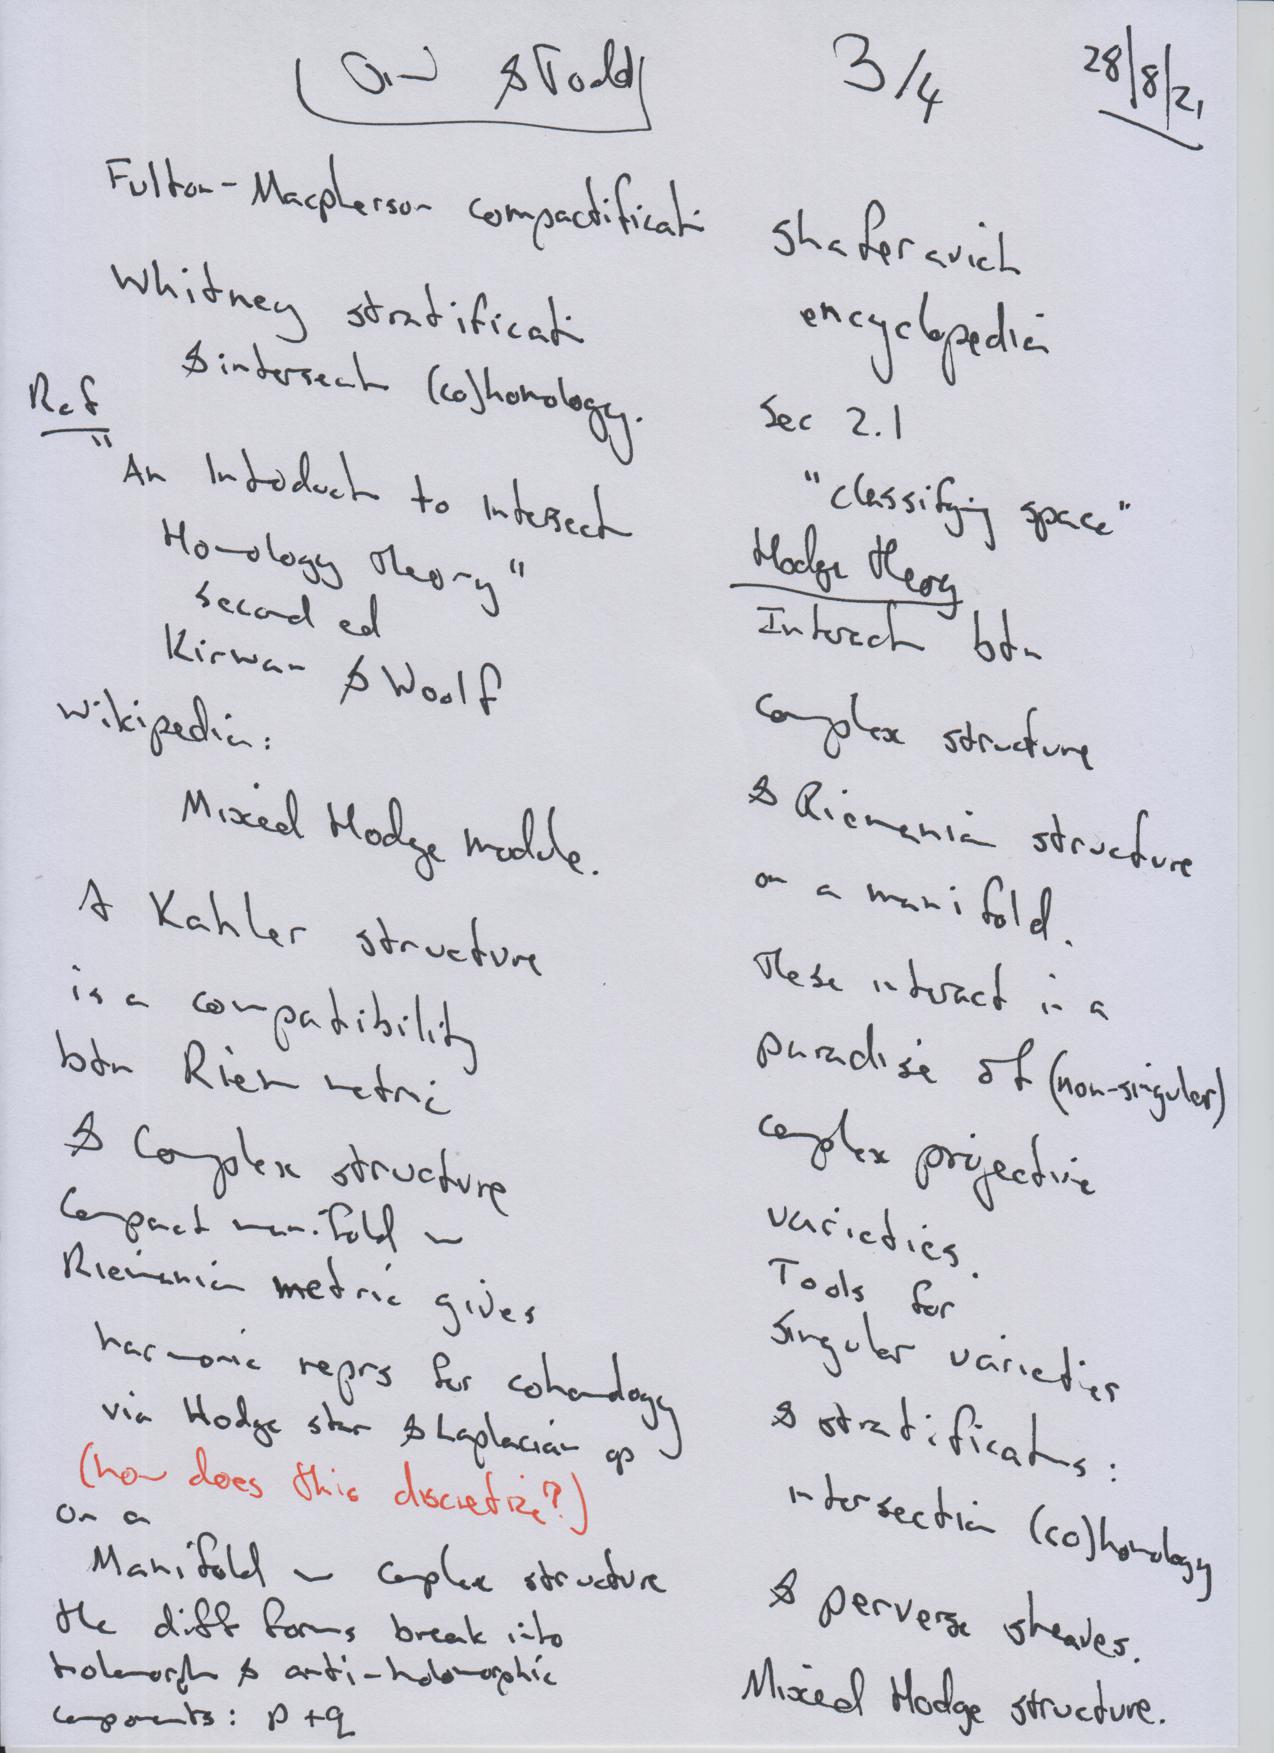 & Todd
3/4
28/8/21
Fulton-Macpherson compactificati
Whitney stratificati
& intersect (co)homology.
Ref
"An Introduct to Intersect
Homology Theory"
second ed
Kirwan & Woolf
Wikipedia:
Mixed Hodge module.
A Kahler structure
is a compatibility
btn Riem metric
& Complex structure
Compact manifold
Riemannian metric gives
harmonic reprs for cohomology
via Hodge star & Laplacian op
(how does this discretize?)
On a
Manifold complex structure
the diff forms break into
holomorph & anti-holomorphic
components: p+q
Shaferavich
encyclopedia
Sec 2.1
"classifying space"
Hodge theory
Interach btn
complex structure
& Riemania structure
on a manifold.
These interact in a
paradise of (non-singular)
complex projective
varieties.
Tools for
singular varieties
& stratificatns:
intersection (co)homology
& perverse sheaves.
Mixed Hodge structure.